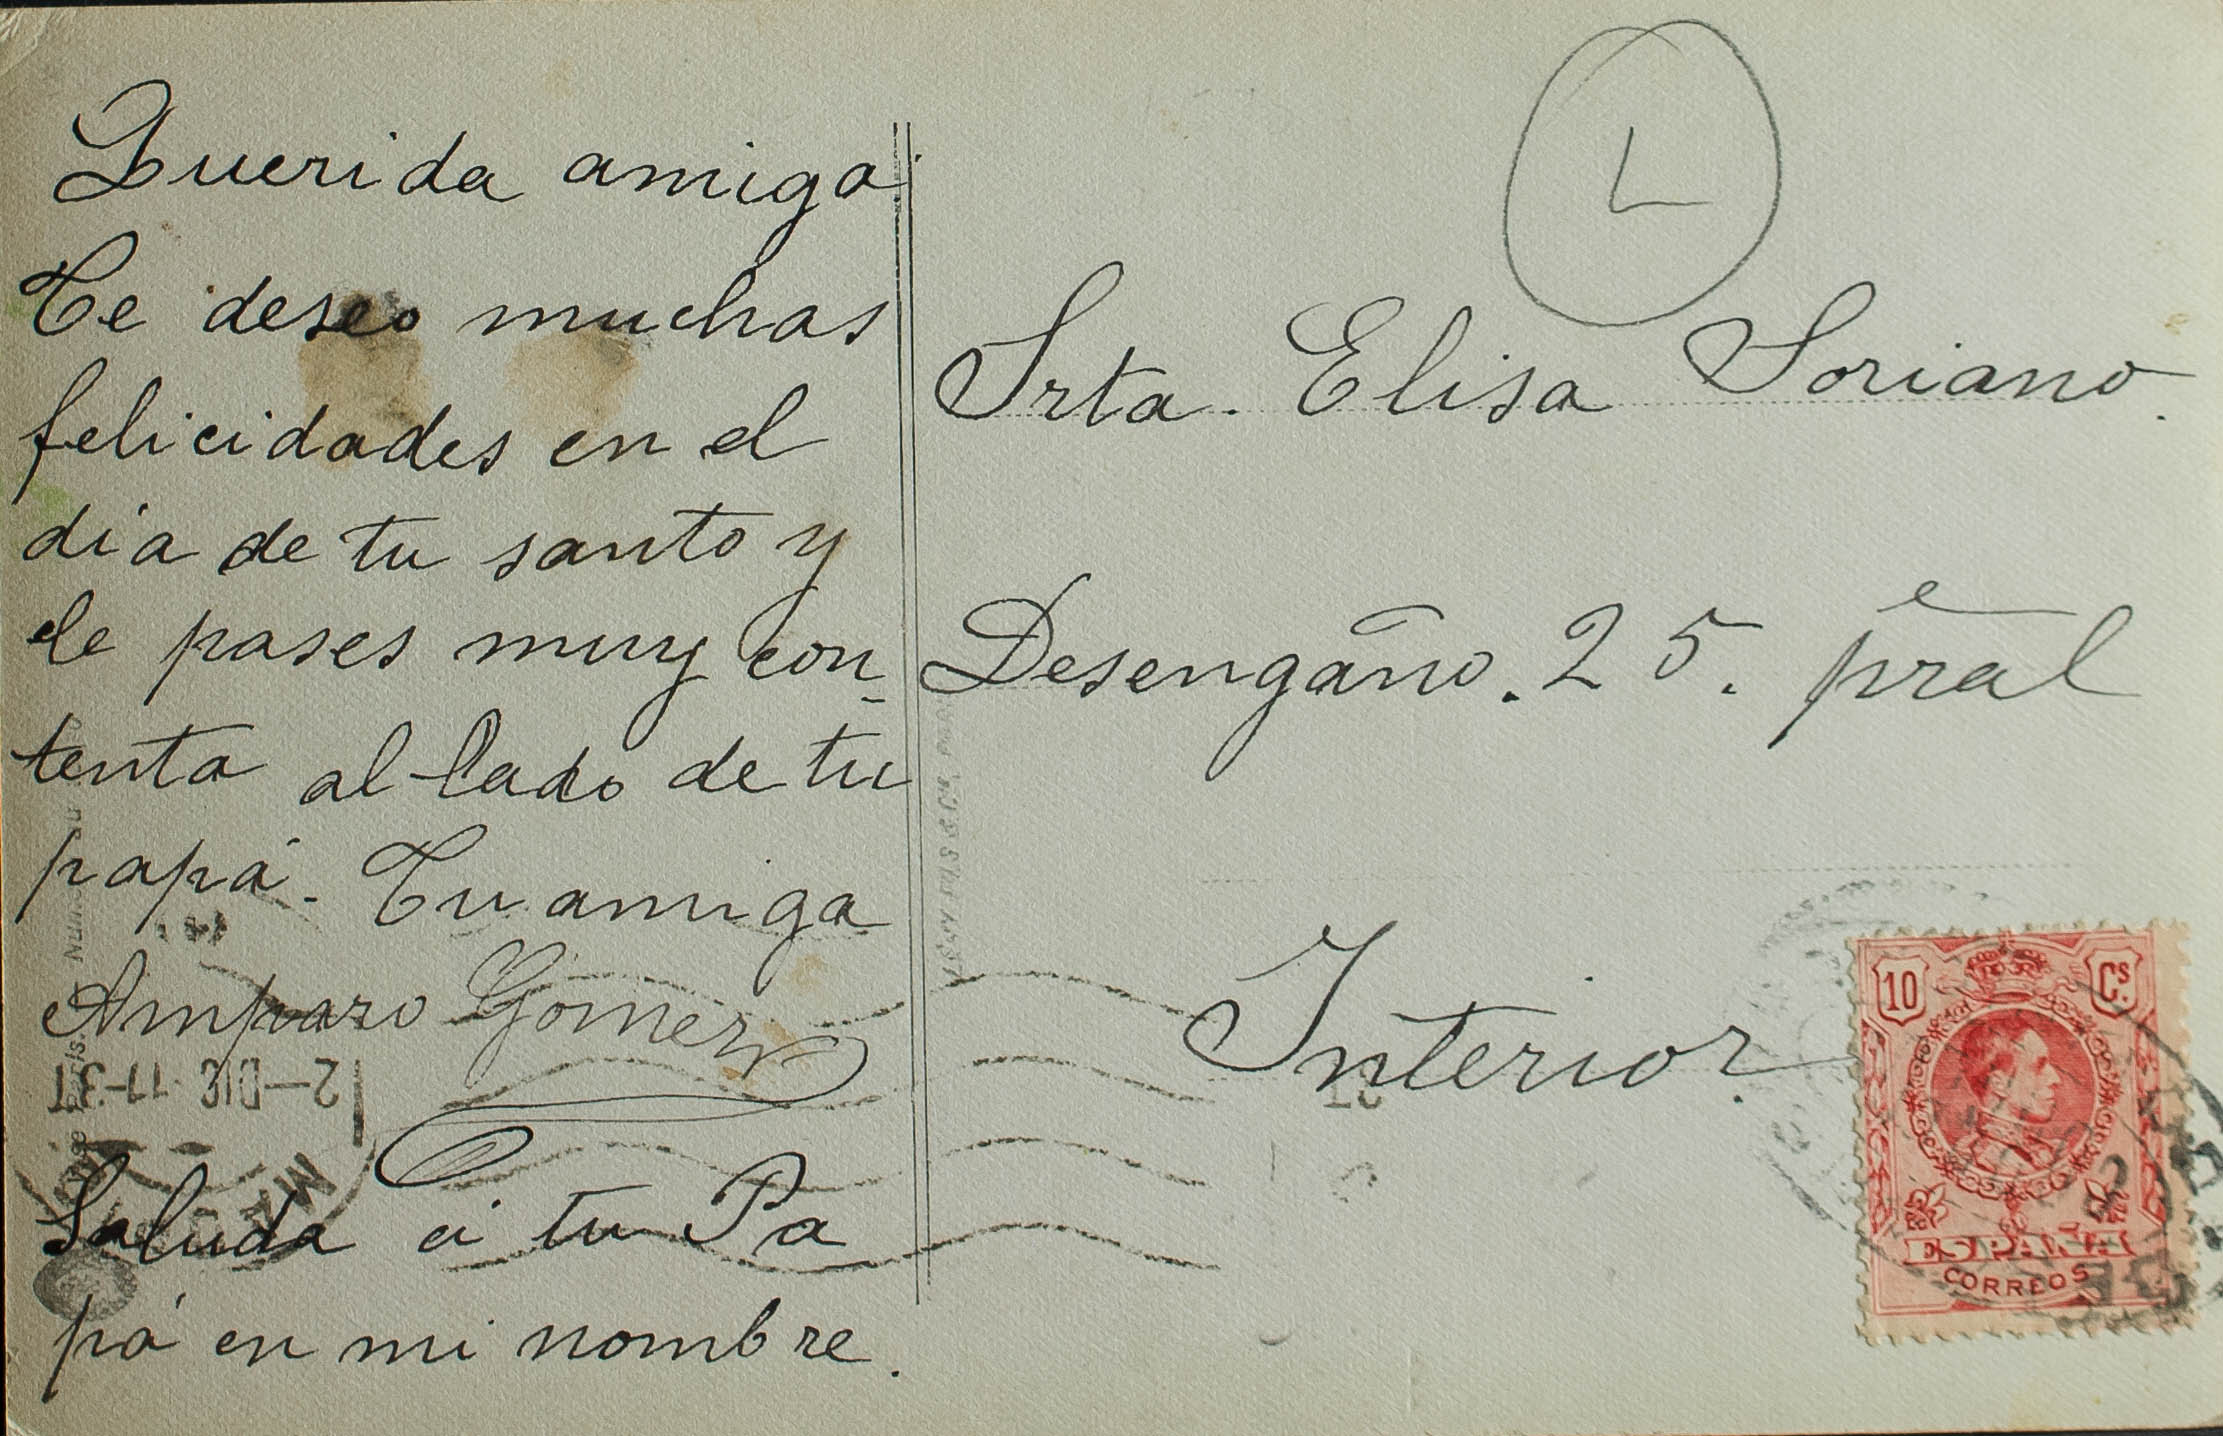 Querida amiga
Te deseo muchas
felicidades en el
día de tu santo y
le pases muy con-
tenta al lado de tu
papá. Tu amiga
Amparo Gómez
Saluda á tu Pa
pá en mi nombre.
L
Srta. Elisa Soriano.
Desengaño. 25. pral
Interior
10 Cs.
ESPAÑA
CORREOS
2-DIC 11-3T